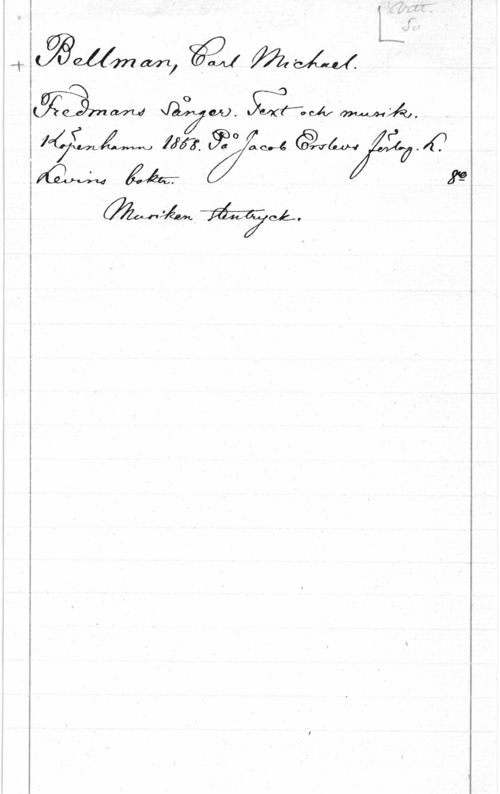 Vitt.
Sv
+ Bellman, Carl Michael.
Fredmans sånger. Text och musik.
Köpenhamn 1868. På Jacob Erslews förlag. L.
Levins boktr. 8°
Musiken stentryck.